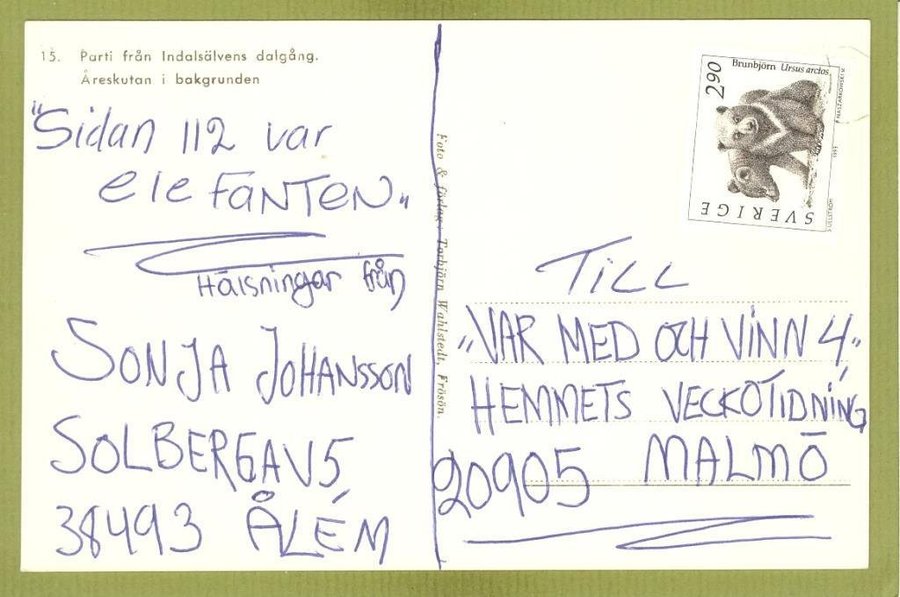 15. Parti från Indalsälvens dalgång.
Åreskutan i bakgrunden
"Sidan 112 var
eleFANTEN"
Hälsningar från
SONJA JOHANSSON
SOLBERGAV 5,
38493 ÅLÉM
Foto & förlag: Torbjörn Wahlstedt, Frösön.
290
Brunbjörn Ursus arctos
SVERIGE
1993
TiLL
"VAR MED OCH ViNN 4,"
HEMMETS VECKOTIDNiNG
20905 MALMÖ